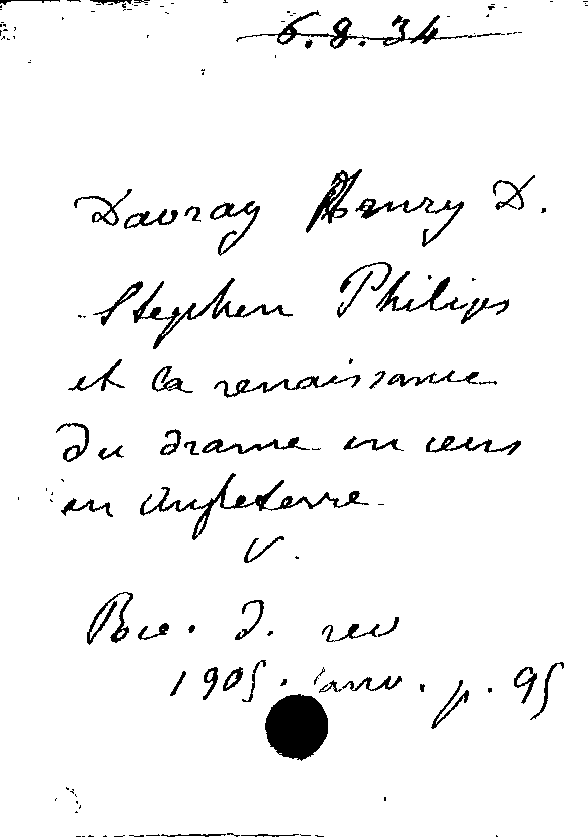 6.8.34
Davray Henry D.
Stephen Philips
et la renaissance
du drame en vers
en Angleterre
V.
Rev. d. rev
1905. janv. p. 95